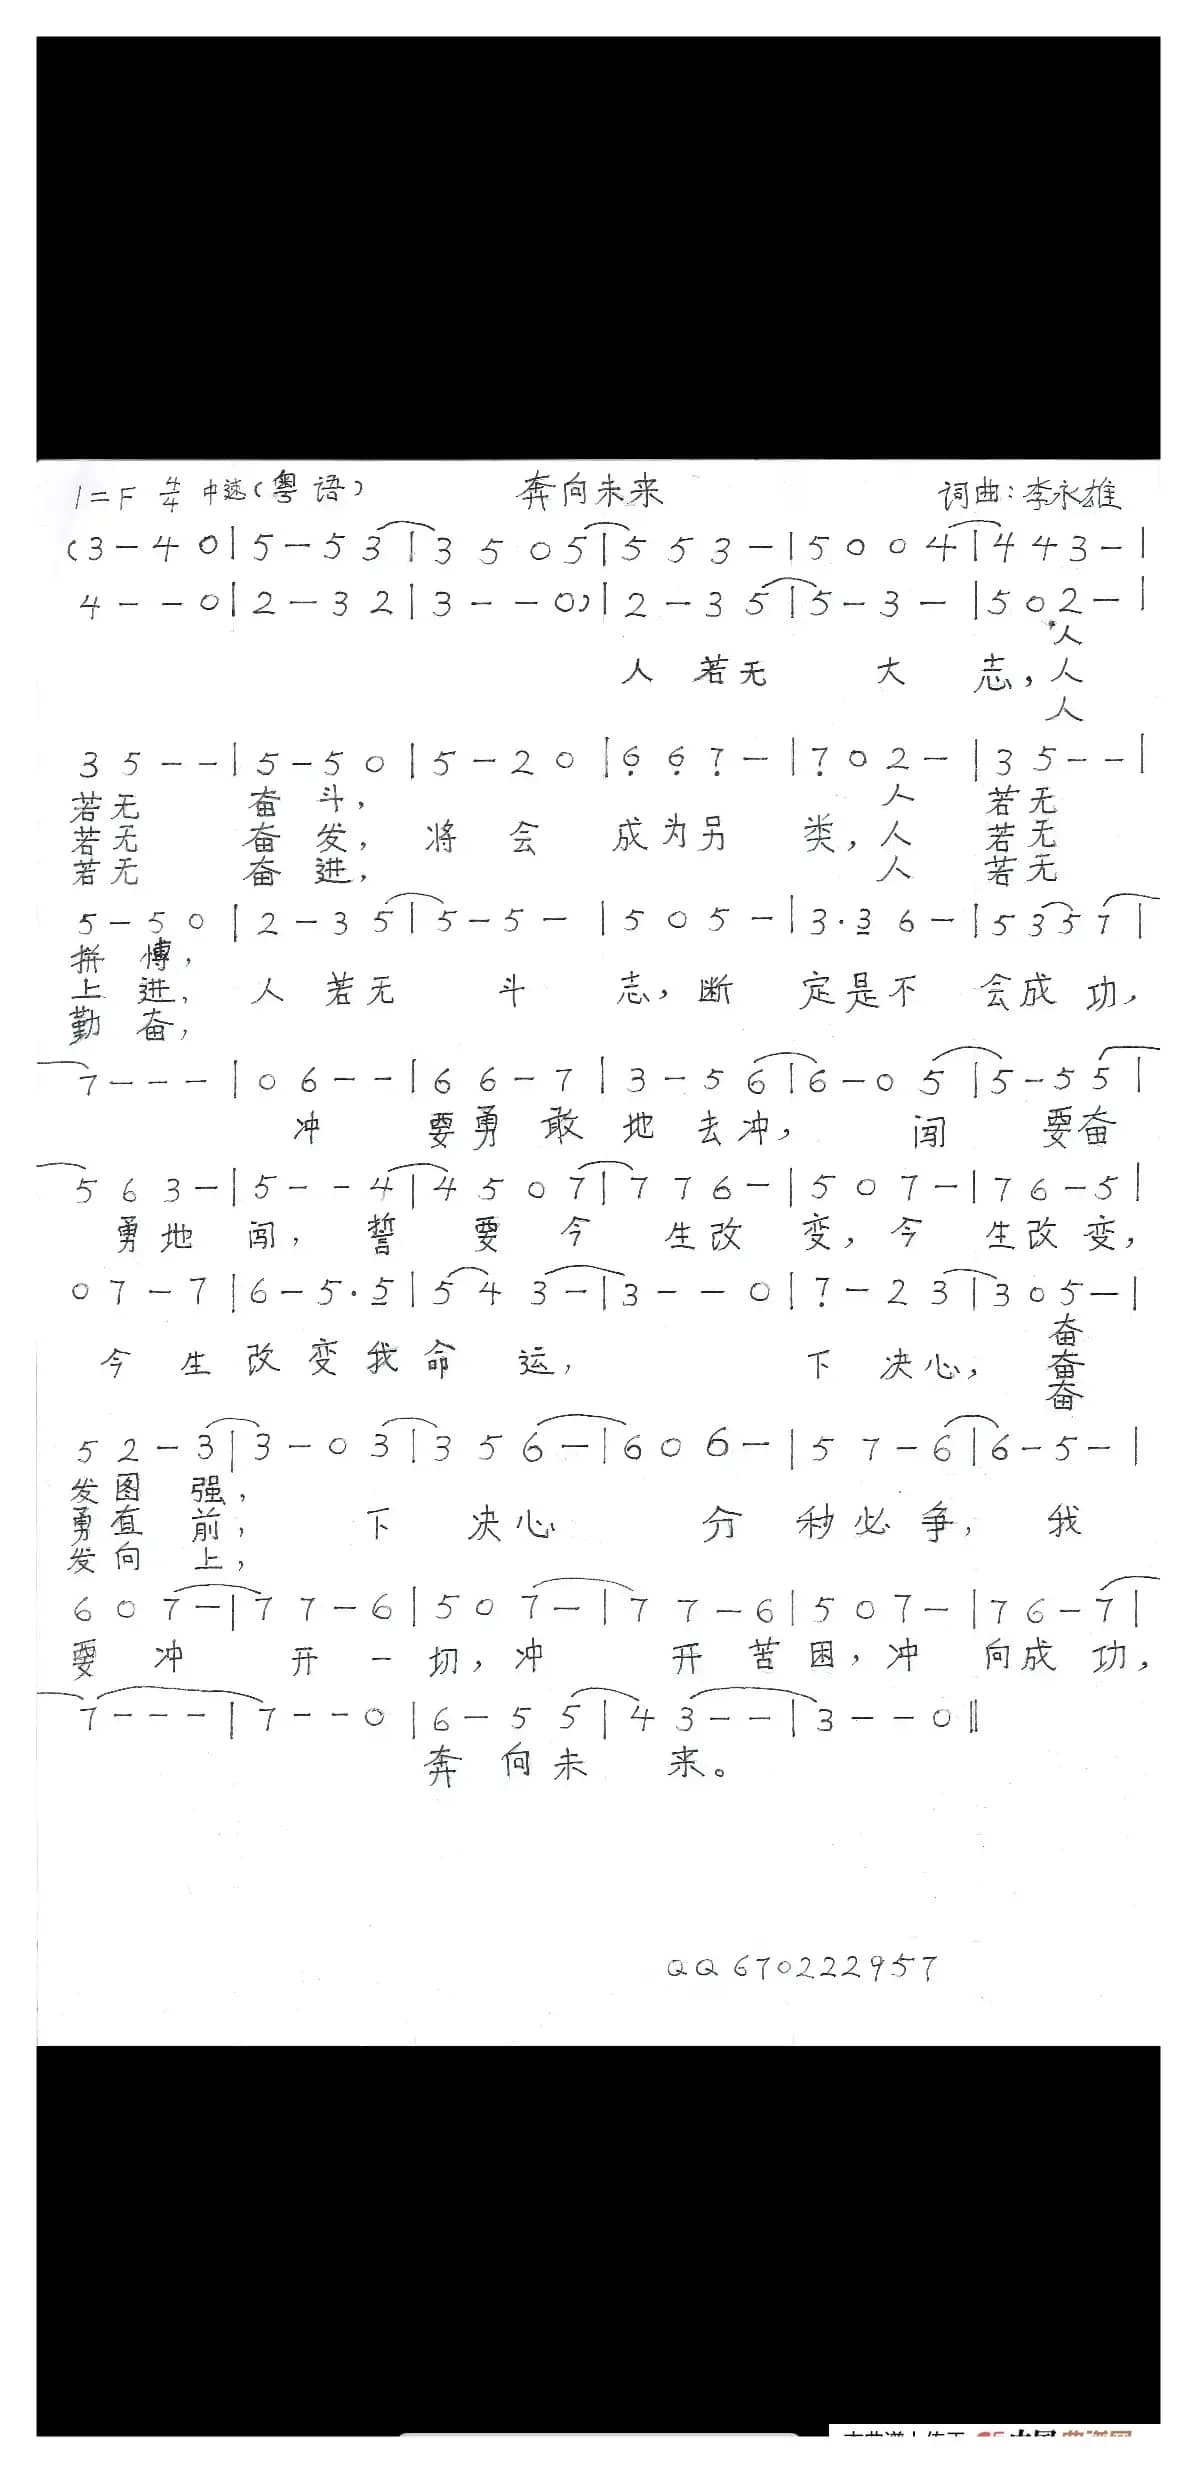 1=F 4/4 中速(粤语) 奔向未来 词曲:李永雄
(3-40|5-53|3505|553-|5004|443-|
4--0|2-32|3--0)|2-35|5-3-|502-|
人
人 若无 大 志,人
人
35--|5-50|5-20|667-|702-|35--|
若无 奋 斗, 人 若无
若无 奋 发, 将 会 成为另 类,人 若无
若无 奋 进, 人 若无
5-50|2-35|5-5-|505-|3·36-|5357|
拼 愽,
上 进, 人 若无 斗 志,断 定是不 会成功,
勤 奋,
7---|06--|66-7|3-56|6-05|5-55|
冲 要勇 敢 地 去冲, 闯 要奋
563-|5--4|4507|776-|507-|76-5|
勇地 闯, 誓 要 今 生改 变,今 生改变,
07-7|6-5·5|543-|3--0|7-23|305-|
奋
今 生 改 变我命 运, 下 决心, 奋
奋
52-3|3-03|356-|606-|57-6|6-5-|
发图 强,
勇直 前, 下 决心 分 秒必争, 我
发向 上,
607-|77-6|507-|77-6|507-|76-7|
要 冲 开 一 切,冲 开 苦困,冲 向成功,
7---|7--0|6-55|43--|3--0‖
奔 向未 来。
QQ670222957